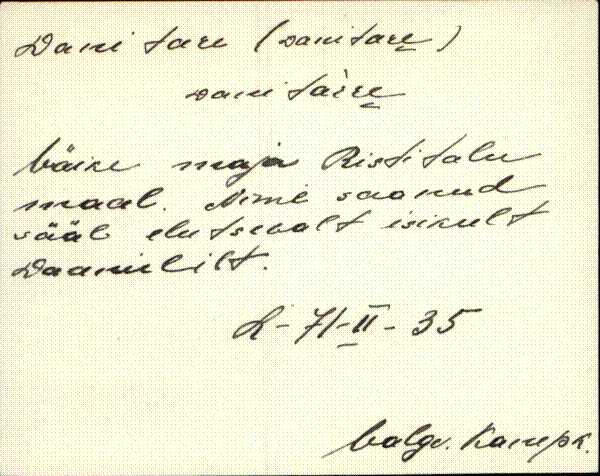 Dani tare (danitare)
danitàre
Väike maja Ristitalu
maal. Nimi saanud
sääl elutsevalt isikult
Daanililt.
R-71-II-35
Valgv. Kanepk.